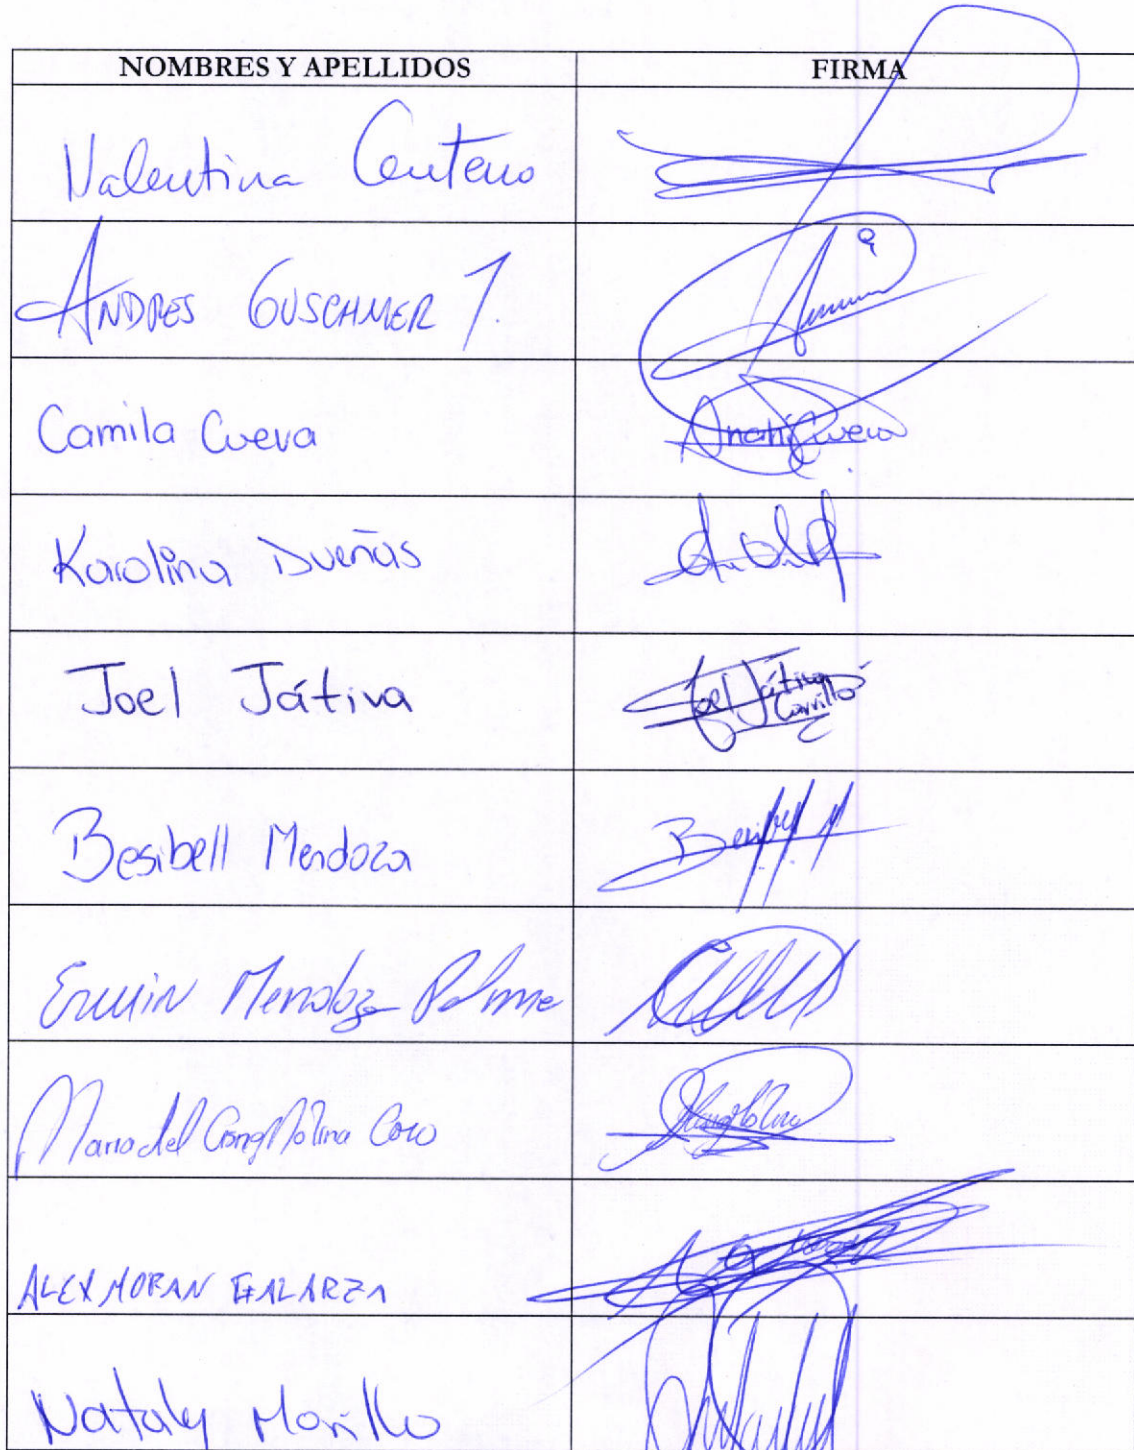 NOMBRES Y APELLIDOS FIRMA
Valentina Centeno
ANDRES GUSCHMER T.
Camila Cueva Anahí Cueva
Karolina Dueñas
Joel Játiva Joel Játiva Carrillo
Besibell Mendoza
Erwin Mendoza Palma
Maria del Molina
ALEX MORAN GALARZA
Nataly Morillo